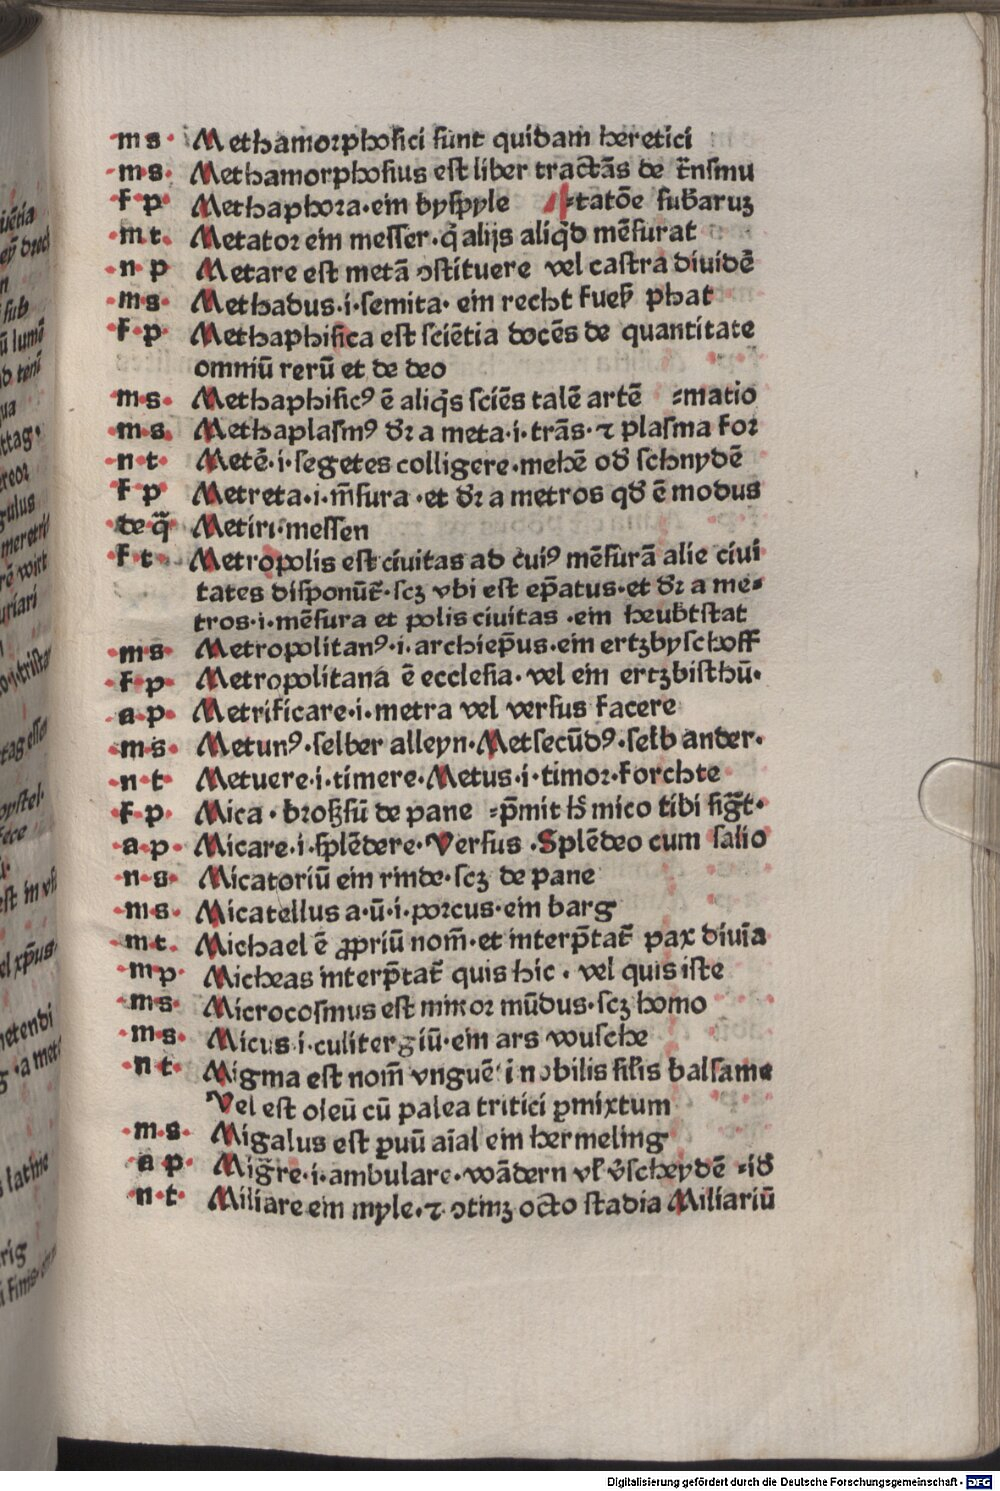 m s · Methamorphosici sunt quidam heretici
m·s· Methamorphosius est liber tractãs de t̃nsmu
f p Methaphora·ein byspyle ⸗tatõe sub̃aruꝫ
m t. Metator ein messer·q̃ alijs aliq̃d mẽsurat
n p Metare est metã ↄstituere vel castra diuidẽ
m s Methadus·i·semita· ein recht fueb̃ phat
f p Methaphisica est sciẽtia docẽs de quantitate
omniũ rerũ et de deo
m s· Methaphisicꝰ ẽ aliq̃s sciẽs talẽ artẽ ⸗matio
m s Methaplasmꝰ dr̃ a meta·i·trãs·⁊ plasma for
n t· Metẽ·i·segetes colligere·mehẽ od̃ schnydẽ
f p Metreta·i·m̃sura·et dr̃ a metros qd̃ ẽ modus
de q̃ Metiri·messen
f t· Metropolis est ciuitas ad cuiꝰ mẽsurã alie ciui
tates disponũt̃·scꝫ vbi est ep̃atus·et dr̃ a me⸗
tros·i·mẽsura et polis ciuitas·ein heub̃tstat
m s Metropolitanꝰ·i·archiep̃us·ein ertzbyschoff
f p Metropolitana ẽ ecclesia·vel ein ertzbisthũ·
a p Metrificare·i·metra vel versus facere
m s Metunꝰ·selber alleyn·Metsecũdꝰ·selb ander·
n t Metuere·i·timere·Metus·i·timor·forchte
f p· Mica·broßsũ de pane ⸗p̃mit h̃ mico tibi sig̃t·
a p· Micare·i·splẽdere·Versus·Splẽdeo cum salio
n s Micatoriũ ein rinde·scꝫ de pane
m s Micatellus a·ũ·i·porcus·ein barg
m t. Michael ẽ ꝓpriũ nom̃·et interp̃tat̃ pax diuĩa
m p Micheas interp̃tat̃ quis hic·vel quis iste
m s Microcosmus est minor mũdus·scꝫ homo
m s Micus·i·culitergiũ·ein ars wusche
n t· Migma est nom̃ vnguẽti nobilis silis balsame
Vel est oleũ cũ palea tritici ꝑmixtum
m s Migalus est ꝑuũ aĩal ein hermeling
a p Mig̃re·i·ambulare·wãdern vñ v̓scheydẽ ⸗id̃
n t· Miliare ein myle·⁊ ↄtinꝫ octo stadia Miliariũ
Digitalisierung gefördert durch die Deutsche Forschungsgemeinschaft - DFG